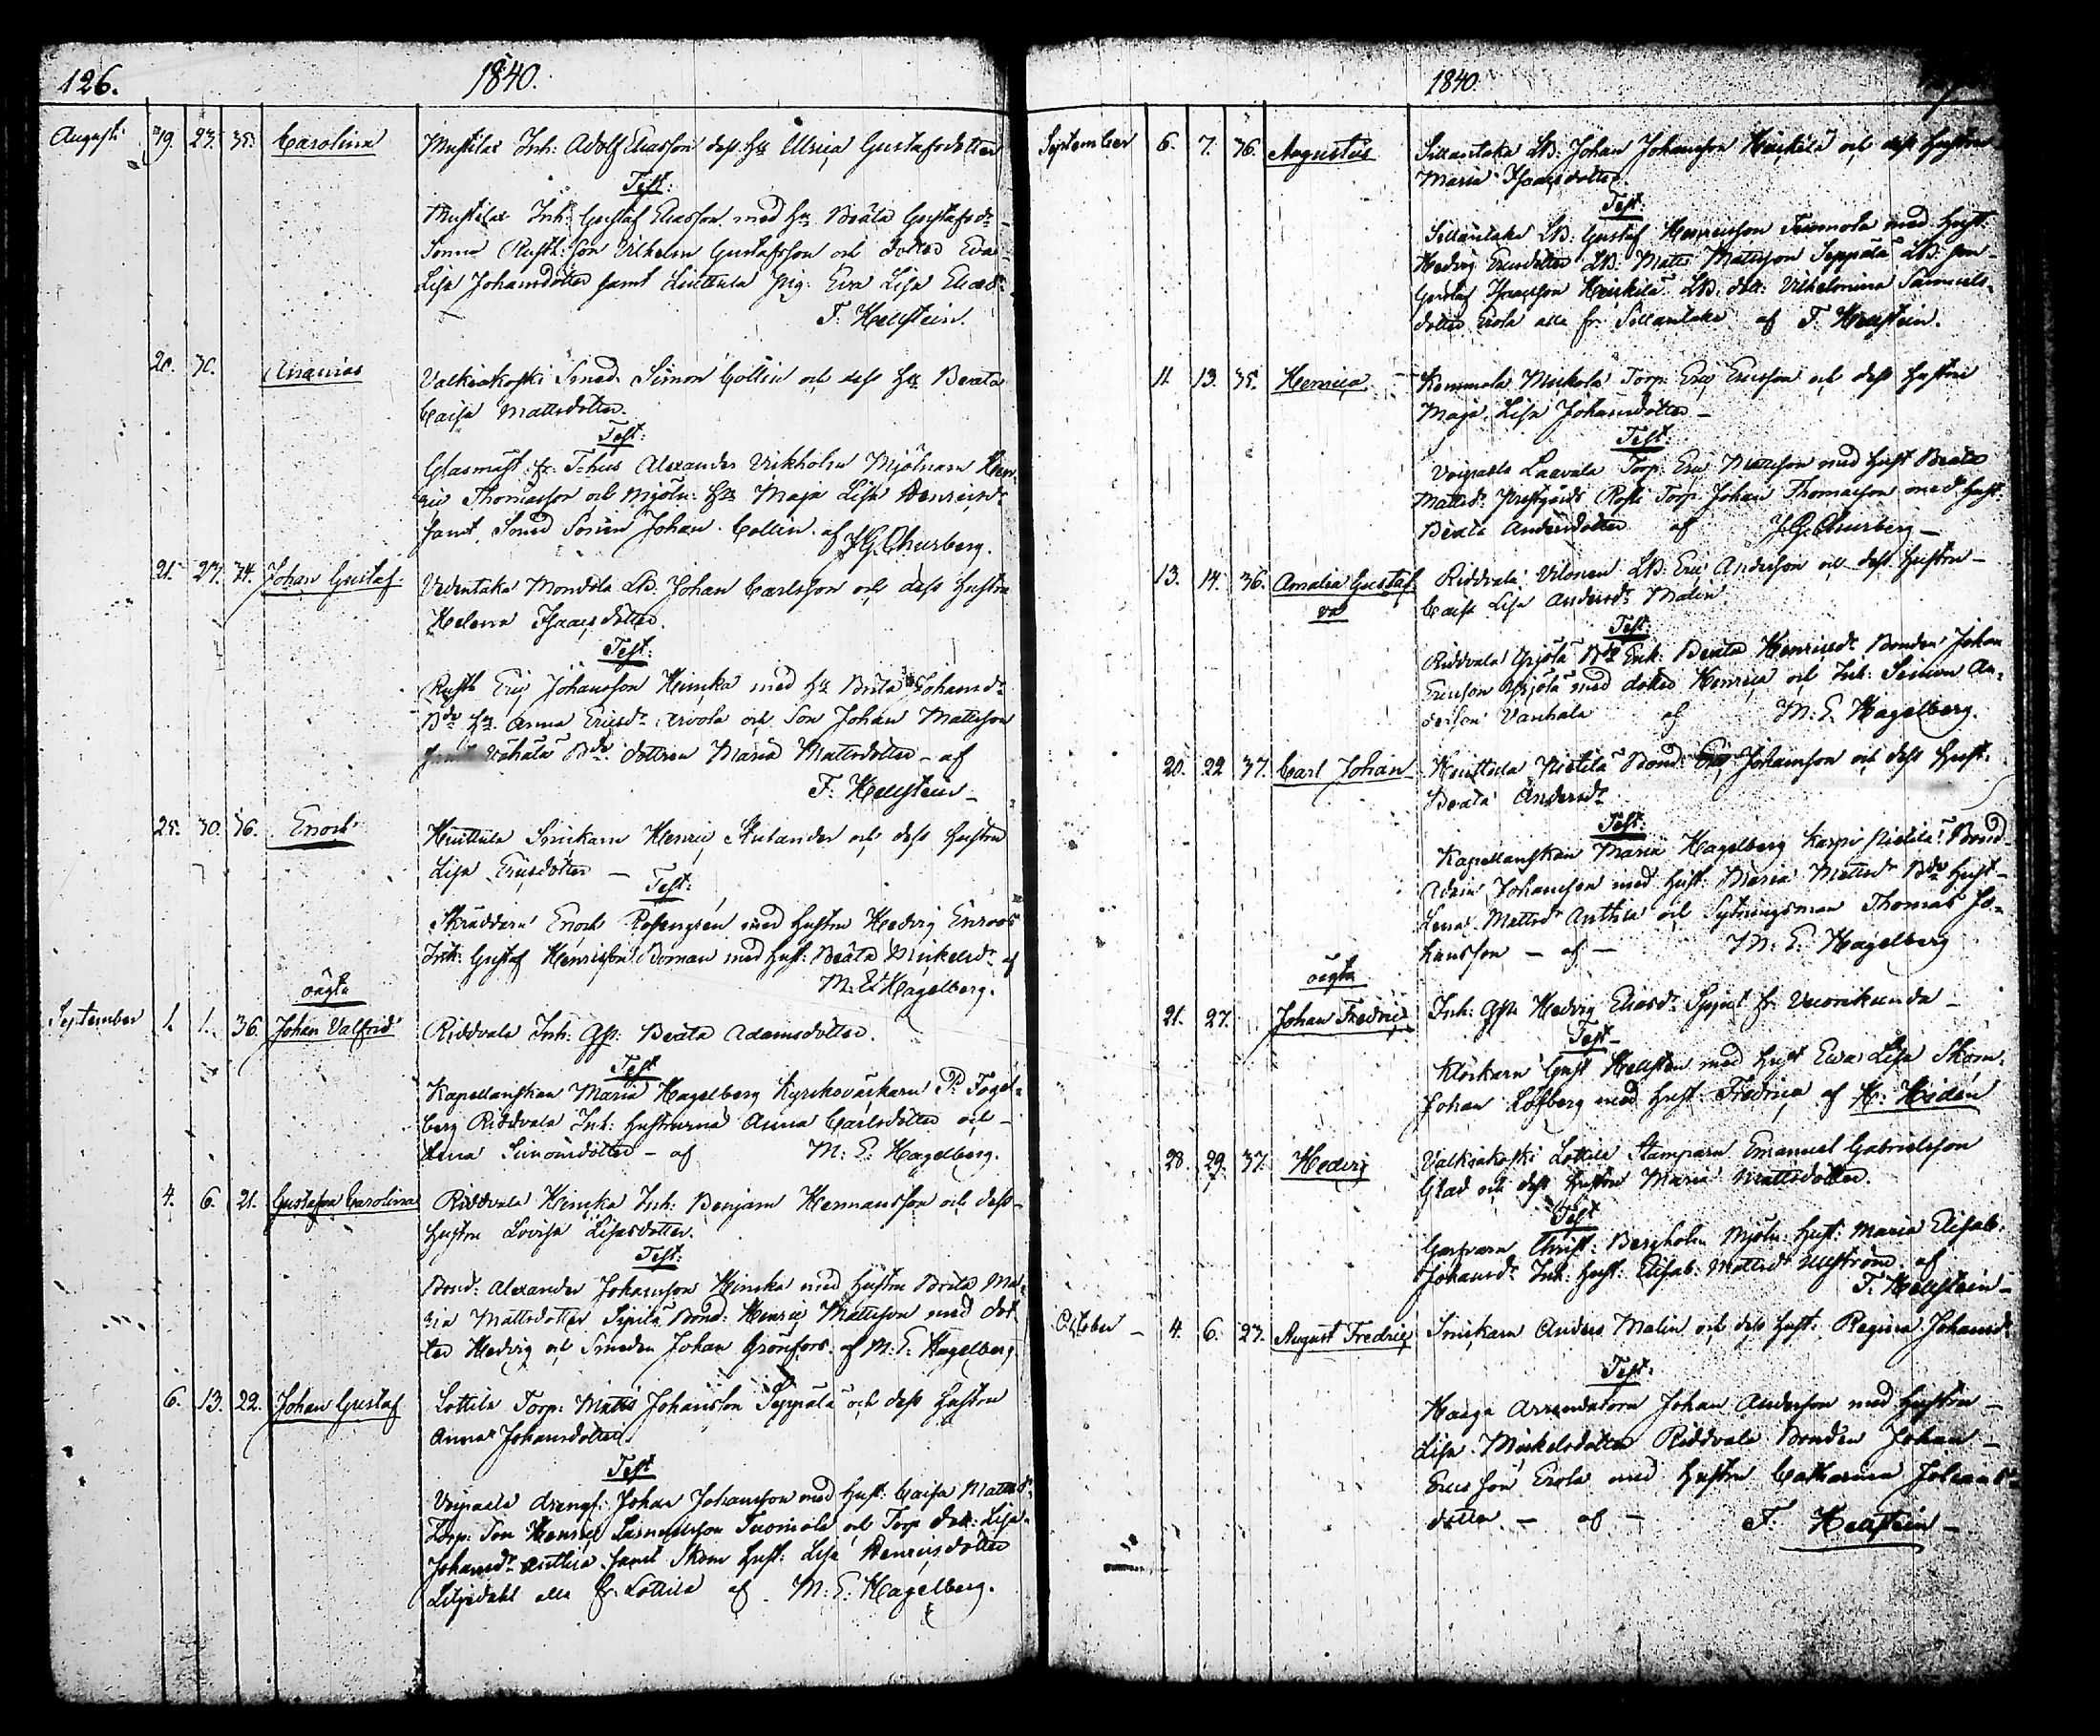 126.
1840.
Augusti 19. 23. 35. Carolina Mustila Inh: Adolf Eliasson dess Hu Ulrica Gustafsdotter
Test:
Mustila Inh: Gustaf Eliasson med Hu Beata Gustafsdr
Rusth: Son Vilhelm Gustafsson och dotter Eva
Lisa Johansdotter samt Huittula pig: Eva Lisa Eliasdr
F. Hellstein.
20. 30. Ananias Valkiakoski Smed. Simon Collin och dess Hu Beata
Caisa Mattsdotter.
Test:
Glasmäst: fr. T-hus Alexander Vikholm Mjölnarn Hen
ric Thomasson och Mjöln: Hu Maja Lisa Henricsdr
samt Smed Sonen Johan Collin. af J.G. Churberg.
21. 27. 34. Johan Gustaf. Vedentaka Mondola LB: Johan Carlsson och dess Hustru
Helena Isaacsdotter.
Test:
Rusth Eric Johansson Heinska med Hu Brita Johansdr
Bde Hu Anna Ericsdr Arvola och Son Johan Mattsson
Vähälä Bde dottren Maria Mattsdotter - af
F. Hellstein -
25. 30. 36. Enoch Huittula Snickarn Henric Stulander och dess Hustru
Lisa Ericsdotter -
Test:
Skräddarn Enoch Rosengren med Hustru Hedvig Enroos
Inh: Gustaf Henricsson Boman med Hust: Beata Mickelsdr af
M: E: Hagelberg.
oägta
September 1. 1. 36. Johan Valfrid Riddvala Inh: Qsp. Beata Adamsdotter.
Test
Kapellanskan Maria Hagelberg Kyrkoväckarn P. Fogel-
berg Riddvala Inh: Hustrurna Anna Carlsdotter och -
Lena Simonsdotter - af M: E: Hagelberg.
4. 6. 21. Gustafva Carolina Riddvala Heinska Inh: Benjam Hermansson och dess -
Hustru Lovisa Lisasdotter.
Test:
Bond: Alexander Johansson Heinska med Hustru Brita Ma-
ria Mattsdotter Sipilä Bond: Henric Mattsson med dot
ter Hedvig och Smeden Johan Grönfors. af M: E: Hagelberg.
6. 13. 22. Johan Gustaf Lottila Torp: Matts Johansson Seppälä och dess Hustru
Anna Johansdotter.
Test
Voipaala drengs: Johan Johansson med Hust: Caisa Mattsdr
Torp: Son Henric Tuomola och Torp dott: Lisa
Johansdr Anttila samt Skom Hust: Lisa Henricsdotter
Liljedahl alla fr. Lottila af. M: E: Hagelberg.
1840.
September 6. 7. 36. Augustus Sillantaka LB: Johan Johansson Heickilä och dess Hustru
Maria Isaacsdotter.
Test:
Sillantaka LB: Gustaf Henricsson Tuomola med Hust:
Hedvig Ericsdotter LB: Matts Mattsson Seppälä LB: son
Gustaf Isaacsson Heickilä LB. dott: Vilhelmina Samuels-
dotter Erola alla fr. Sillantaka af F. Hellstein.
11. 13. 35. Henrica Kemmola Mickola Torp: Eric Ericsson och dess Hustru
Maja Lisa Johansdotter -
Test:
Voipaala Laavala Torp. Eric Mattsson med Hust Beata
Mattsdr Prestgårds Koski Torp Johan Thomasson med Hust:
Beata Andersdotter af J.G. Churberg -
13. 14. 36. Amalia Gustaf
va Riddvala Vilonen LB: Eric Andersson och dess Hustru -
Caisa Lisa Andersdr Malin
Test:
Riddvala Yrjölä Bde Enk: Beata Henricsdr Bonden Johan
Ericsson Yrjölä med dotter Henrica och Inh: Simon An-
dersson Vanhala af M: E: Hagelberg.
20. 22 37. Carl Johan Huittula Pietilä Bond: Eric Johansson och dess Hust.
Beata Andersdr
Test:
Kapellanskan Maria Hagelberg Karpi Pietilä Bond
Adam Johansson med Hust: Maria Mattsdr Bde Hust -
Lena Mattsdr Anttila och Sytningsman Thomas Jo-
hansson - af - M: E: Hagelberg
oägta
21. 27. Johan Fredric Inh: Qsp. Hedvig Eliasdr fr. Vuorikunda -
Test -
Klockarn Gust Hellsten med Hust Eva Lisa Skom.
Johan Löfberg med Hust: Fredrica af H: Hidén
28. 29. 37. Hedvig Valkiakoski Lottila Stamparn Emanuel Gabrielsson
Glad och dess Hustru Maria Mattsdotter.
Test
Garfvarn Christ: Bergholm Mjöln: Hust: Maria Elisab:
Johansdr Inh: Hust: Elisab: Mattsdr Ullström. af
F. Hellstein -
October - 4. 6. 27. August Fredric Snickarn Anders Malin och dess Hust: Regina Johansdr
Test:
Haaga Arrendatorn Johan Andersson med Hustru -
Lisa Mickelsdotter Riddvala Bonden Johan -
Ericsson Erola med Hustru Catharina Johans-
dotter - af - F. Hellstein -